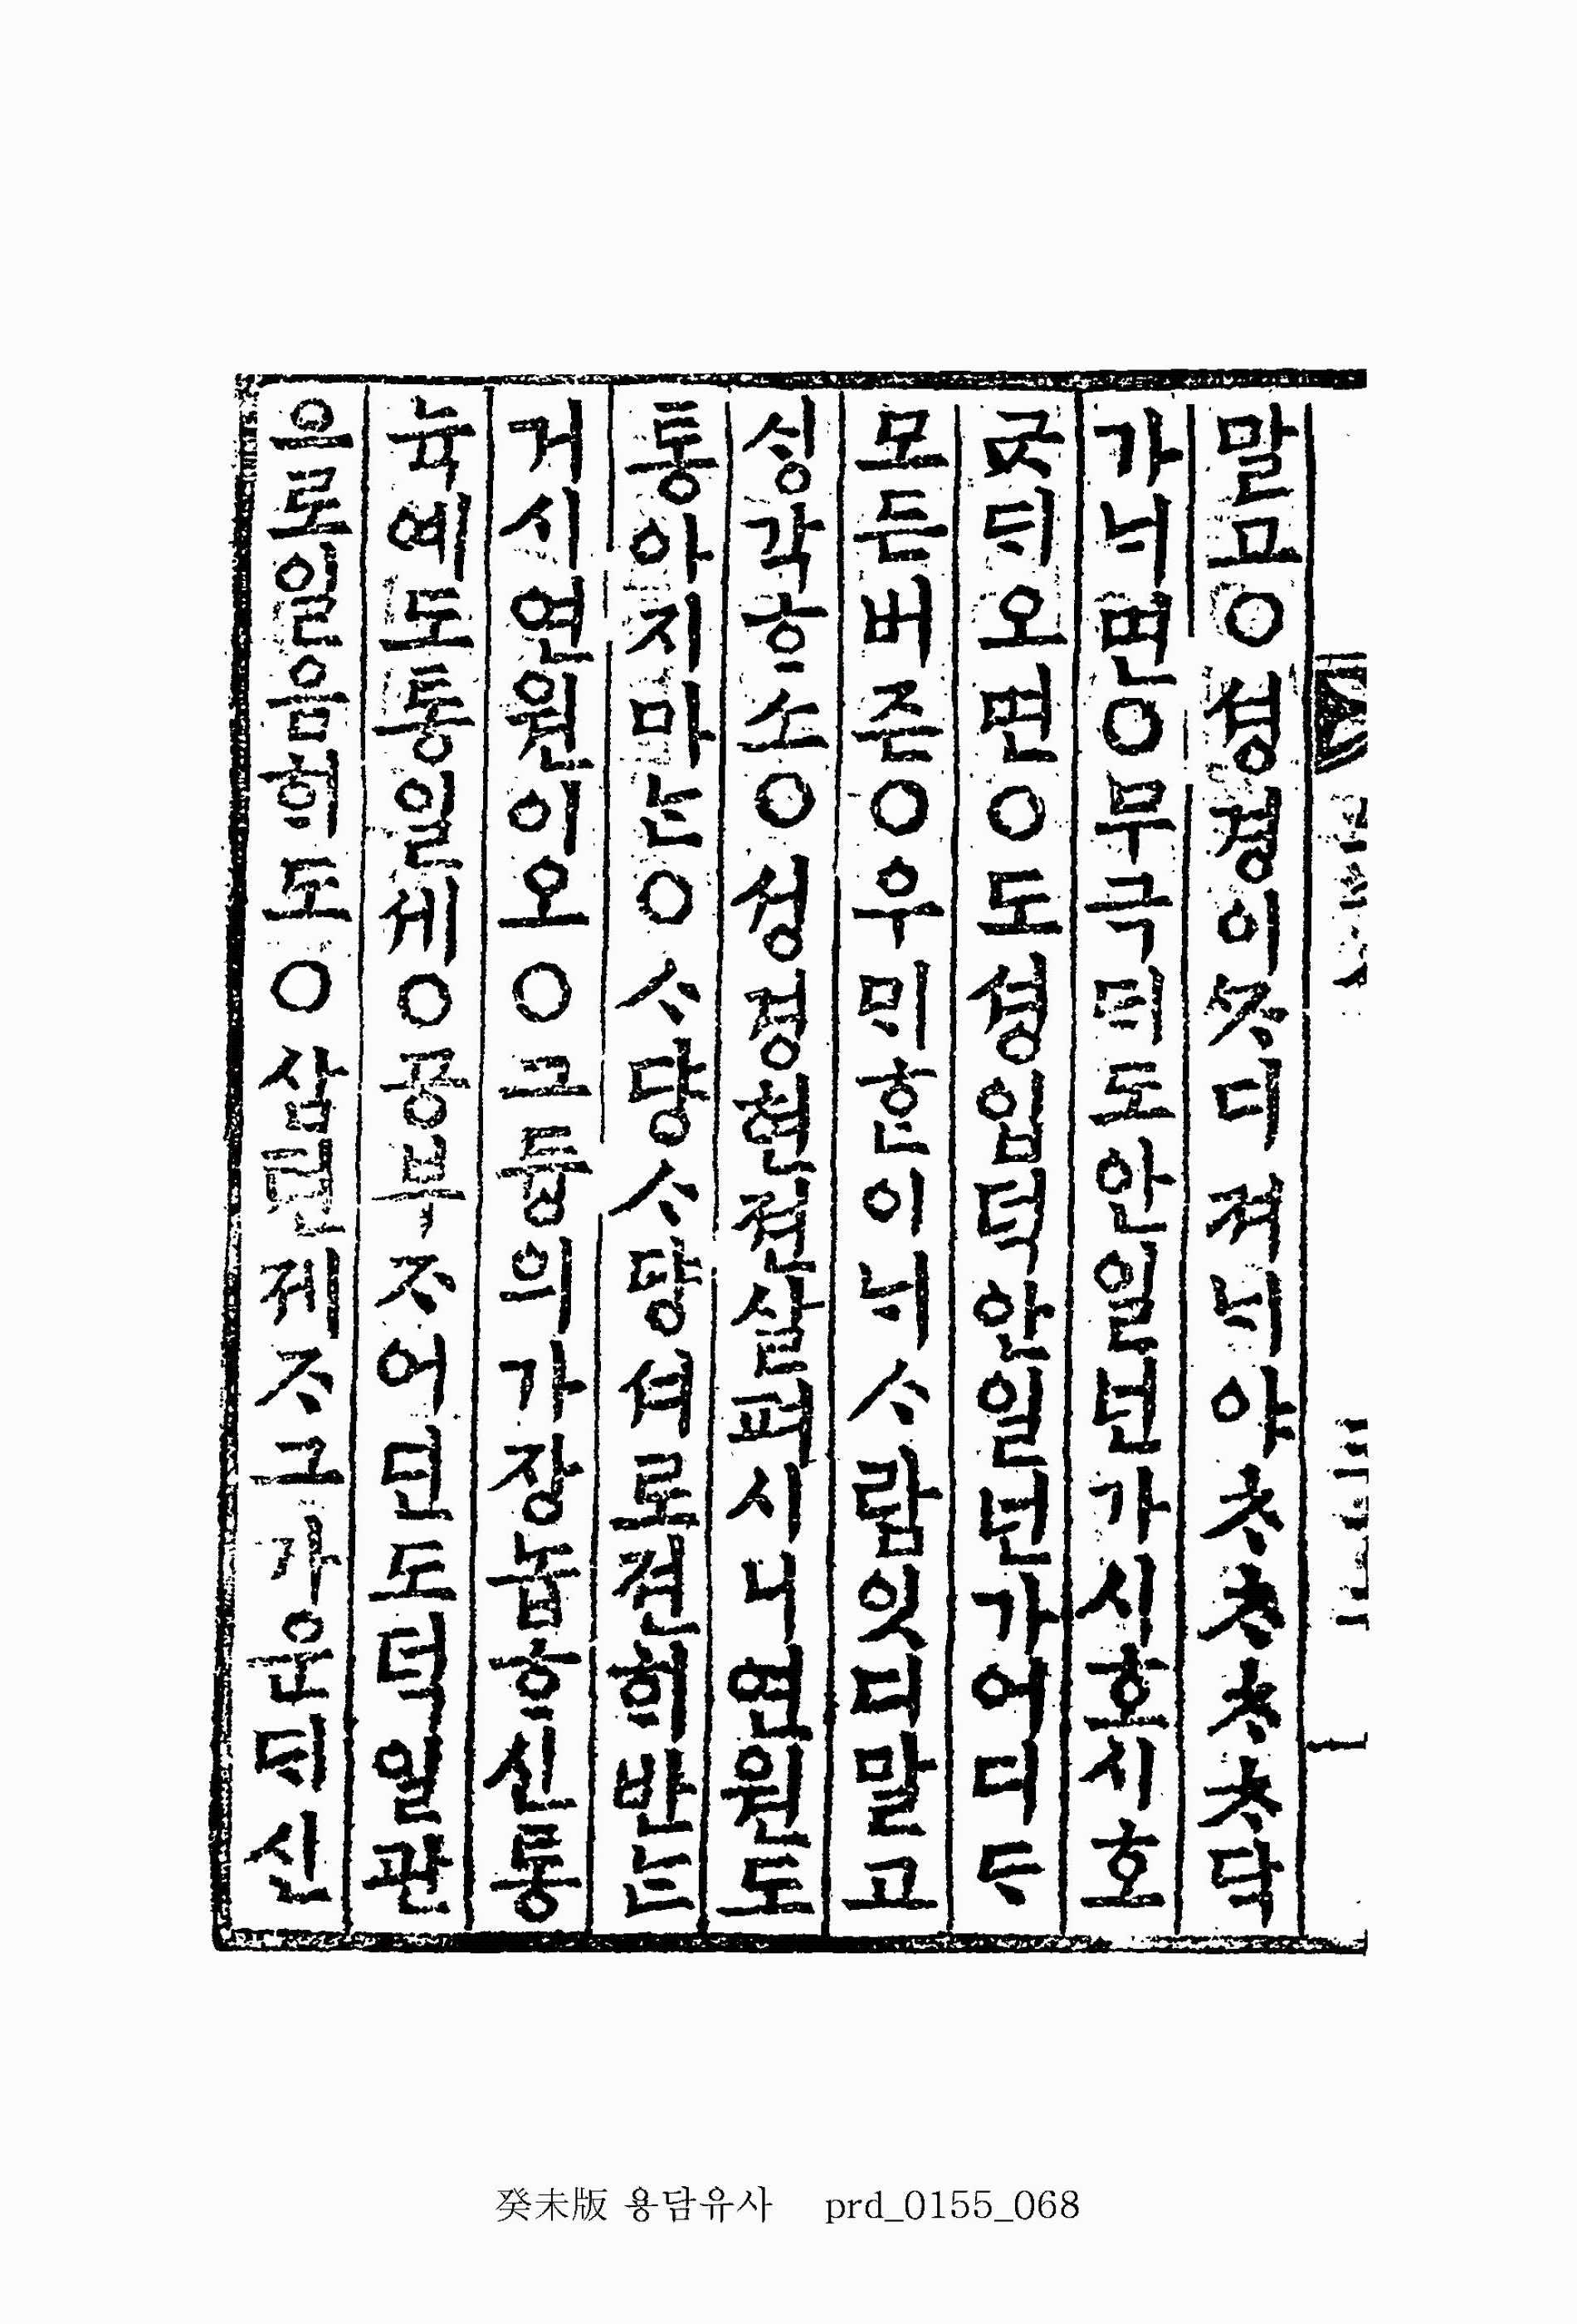 말고○셩경이ᄶᆞ디져ᄂᆡ야ᄎᆞᄎᆞᄎᆞᄎᆞ닥
가ᄂᆡ면○무극ᄃᆡ도안일넌가시호시호
굿ᄃᆡ오면○도셩입덕안일넌가어디ᄃᆞ
모든버즌○우ᄆᆡᄒᆞᆫ이ᄂᆡᄉᆞ람잇디말고
싱각ᄒᆞ소○성경현젼살펴시니연원도
통아지마는○ᄉᆞ댱ᄉᆞ댱셔로젼ᄒᆡ반는
거시연원이오○그듕의가장놉ᄒᆞ신통
뉵예도통일세○공부ᄌᆞ어딘도덕일관
으로일음ᄒᆡ도○삼쳔제ᄌᆞ그가운ᄃᆡ신
癸未版 용담유사 prd_0155_068